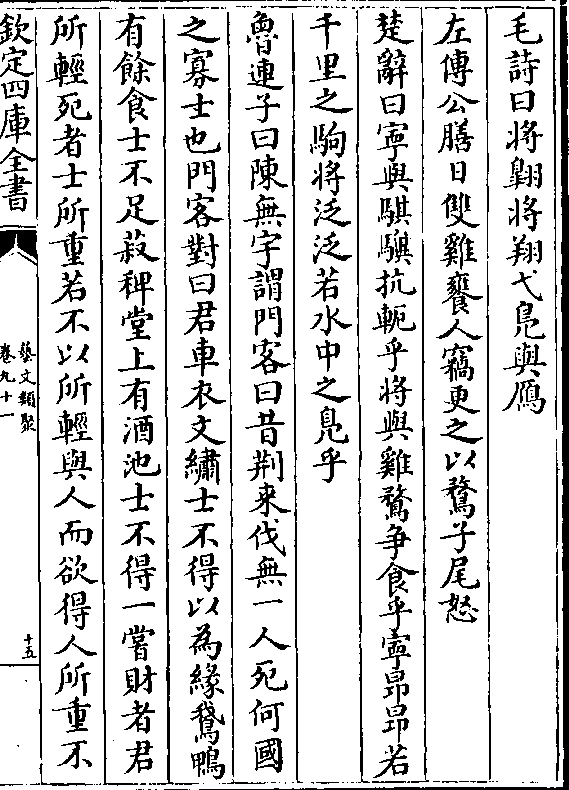 毛詩曰將翺將翔弋鳬與鴈
左傳公膳日雙雞饔人竊更之以鶩子尾怒
楚辭曰寧與騏驥抗軛乎將與雞鶩争食乎寧昂昂若
千里之駒將泛泛若水中之鳬乎
魯連子曰陳無宇謂門客曰昔荆来伐無一人死何國
之寡士也門客對曰君車衣文繡士不得以為緣鵞鴨
有餘食士不足菽稗堂上有酒池士不得一嘗財者君
所輕死者士所重若不以所輕與人而欲得人所重不
欽定四庫全書
藝文類聚
卷九十一
十五